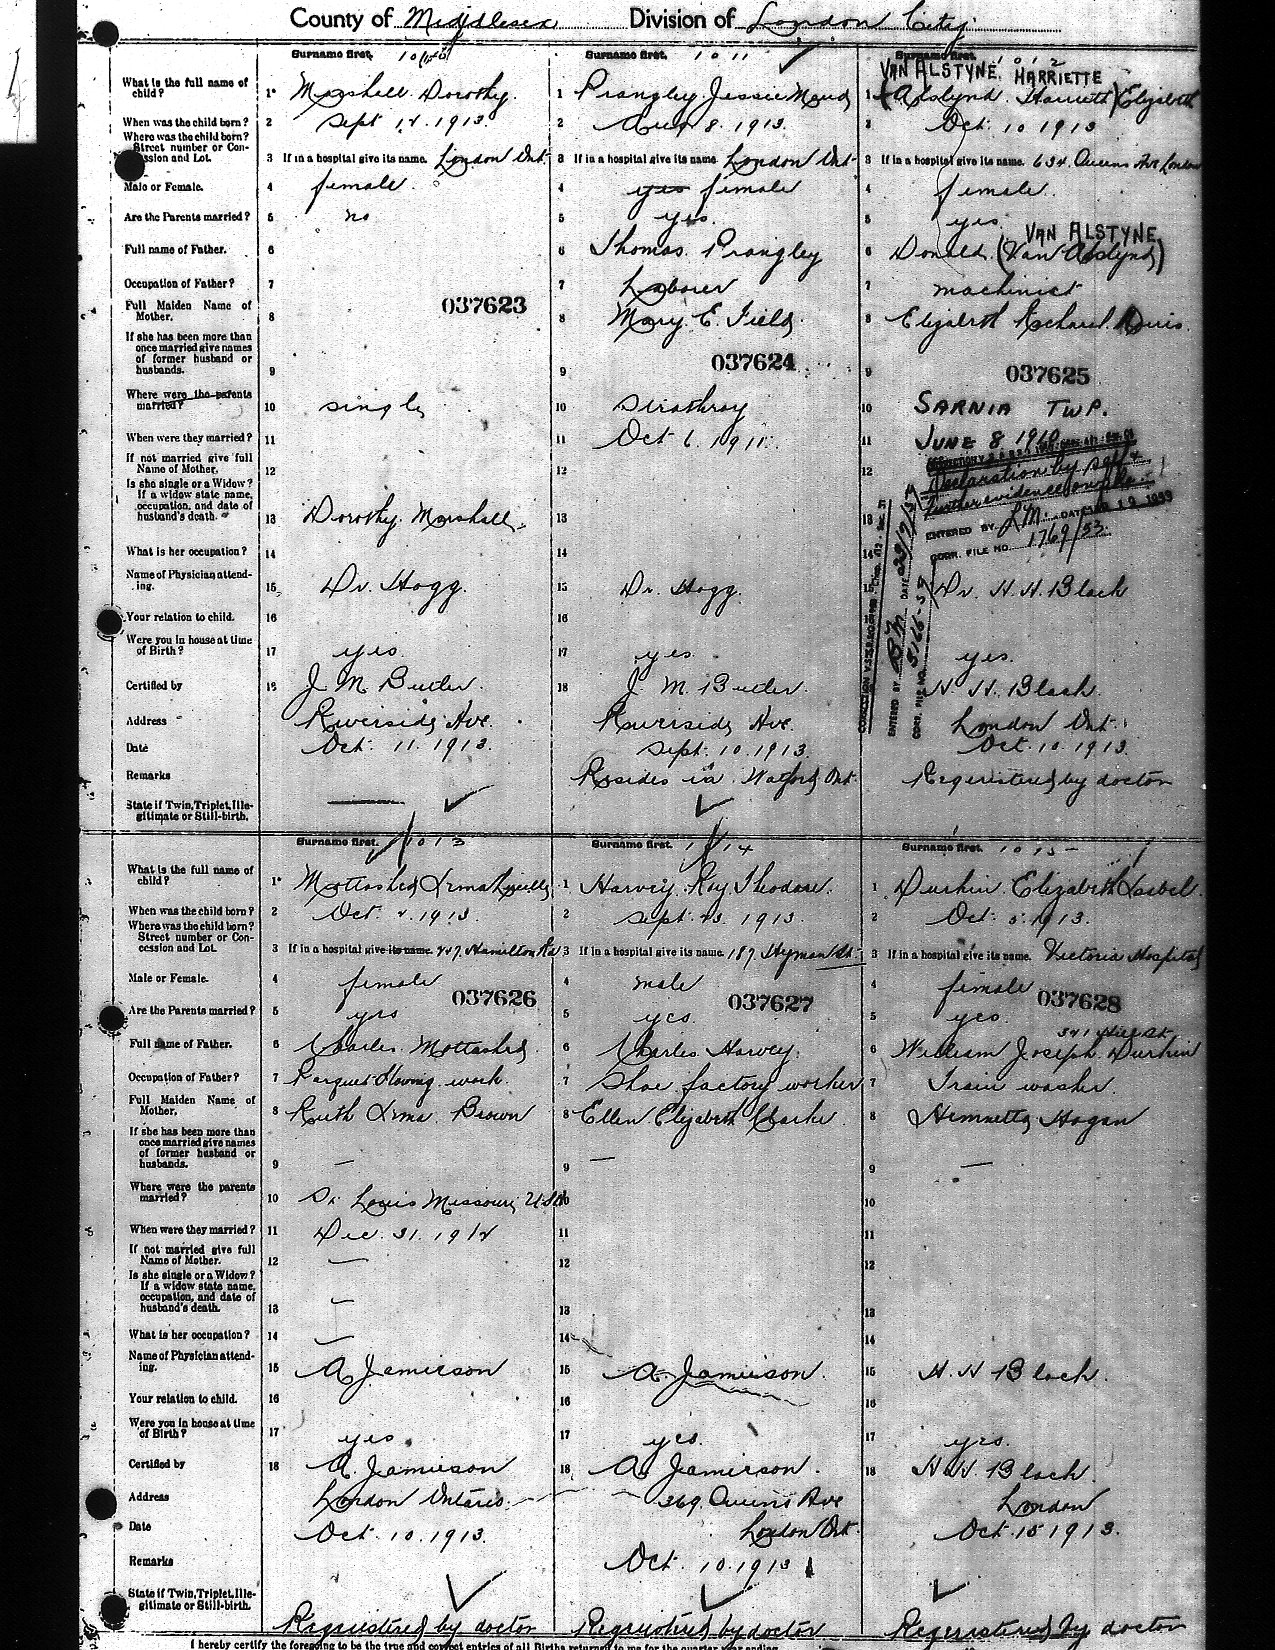 County of Middlesex Division of London City
Surname first. Surname first. 1011 Surname first. 1012
VAN ALSTYNE, HARRIETTE
What is the full name of child? 1 Marshall Dorothy. 1 Prangley Jessie Maud 1 (Alslynd. Harrieth) Elizabeth
When was the child born? 2 Sept 12. 1913. 2 Aug 8. 1913 2 Oct. 10 1913
Where was the child born? Street number or Concession and Lot. 3 If in a hospital give its name. London Ont. 3 If in a hospital give its name London Ont 3 If in a hospital give its name. 634. Queens Ave London
Male or Female. 4 female. 4 yes female 4 female.
Are the Parents married? 5 no 5 yes. 5 yes
VAN ALSTYNE
Full name of Father. 6 6 Thomas Prangley 6 Donald (Van Alslynd)
Occupation of Father? 7 7 Laborer 7 machinist
Full Maiden Name of Mother. 8 8 Mary E. Field 8 Elizabeth Rachael
037623
If she has been more than once married give names of former husband or husbands. 9 9 9
037624 037625
Where were the parents married? 10 single 10 Strathroy 10 SARNIA TWP.
When were they married? 11 11 Oct 6. 1911. 11 JUNE 8 1910
If not married give full Name of Mother. 12 12 12
Declaration by self &
further evidence on file
Is she single or a Widow? If a widow state name, occupation, and date of husband's death. 13 Dorothy Marshall. 13 13
ENTERED BY L.M. DATE
CORR. FILE NO. 1769/53
What is her occupation? 14 14 14
Name of Physician attending. 15 Dr. Hogg. 15 Dr. Hogg. 15 Dr. H. H. Black
Your relation to child. 16 16
Were you in house at time of Birth? 17 yes. 17 yes. yes.
Certified by 18 J. M. Butler. 18 J. M. Butler. H. H. Black.
Address Riverside Ave. Riverside Ave. London Ont.
Date Oct. 11. 1913. Sept. 10. 1913. Oct. 10. 1913.
ENTERED BY DATE
CORR. FILE NO. 5166-57
Remarks Resides in Watford Ont. Regeristered by doctor
State if Twin, Triplet, Illegitimate or Still-birth.
Surname first. 1013 Surname first. 1014 Surname first. 1015
What is the full name of child? 1 Mottashed Irma 1 Harvey Roy Theodore. 1 Durkin Elizabeth Isabel.
When was the child born? 2 Oct. 2. 1913. 2 Sept. 23. 1913. 2 Oct. 5. 1913.
Where was the child born? Street number or Concession and Lot. 3 If in a hospital give its name. 427. Hamilton Rd 3 If in a hospital give its name. 187 Hyman St. 3 If in a hospital give its name. Victoria Hospital
Male or Female. 4 female 4 male 4 female
037626 037627 037628
Are the Parents married? 5 yes 5 yes. 5 yes.
Full name of Father. 6 Charles Mottashed. 6 Charles Harvey. 6 William Joseph Durkin
Occupation of Father? 7 work. 7 Shoe factory worker 7 Train washer.
Full Maiden Name of Mother. 8 Ruth Irma Brown 8 Ellen Elizabeth Clarke 8 Henrietta Hogan
If she has been more than once married give names of former husband or husbands. 9 — 9 — 9 —
Where were the parents married? 10 St. Louis Missouri, U.S.A. 10 10
When were they married? 11 Dec. 31. 1912 11 11
If not married give full Name of Mother. 12 — 12 12
Is she single or a Widow? If a widow state name, occupation, and date of husband's death. 13 — 13 13
What is her occupation? 14 — 14 14
Name of Physician attending. 15 A. Jamieson 15 A. Jamieson. 15 H. H. Black.
Your relation to child. 16 16 16
Were you in house at time of Birth? 17 yes. 17 yes. 17 yes.
Certified by 18 A. Jamieson 18 A. Jamieson. 18 H. H. Black.
Address London Ontario. 369. Queens Ave London
Date Oct. 10. 1913. London Ont. Oct. 15 1913.
Remarks Oct. 10. 1913
State if Twin, Triplet, Illegitimate or Still-birth.
Regeristered by doctor Regeristered by doctor Regeristered by doctor
I hereby certify the foregoing to be the true and correct entries of all Births returned to me for the quarter year ending